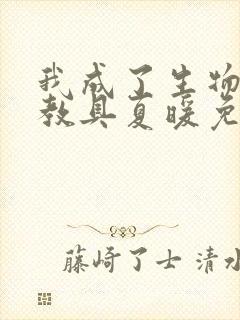 我成了生物
教具夏暖免
藤崎了士 清水